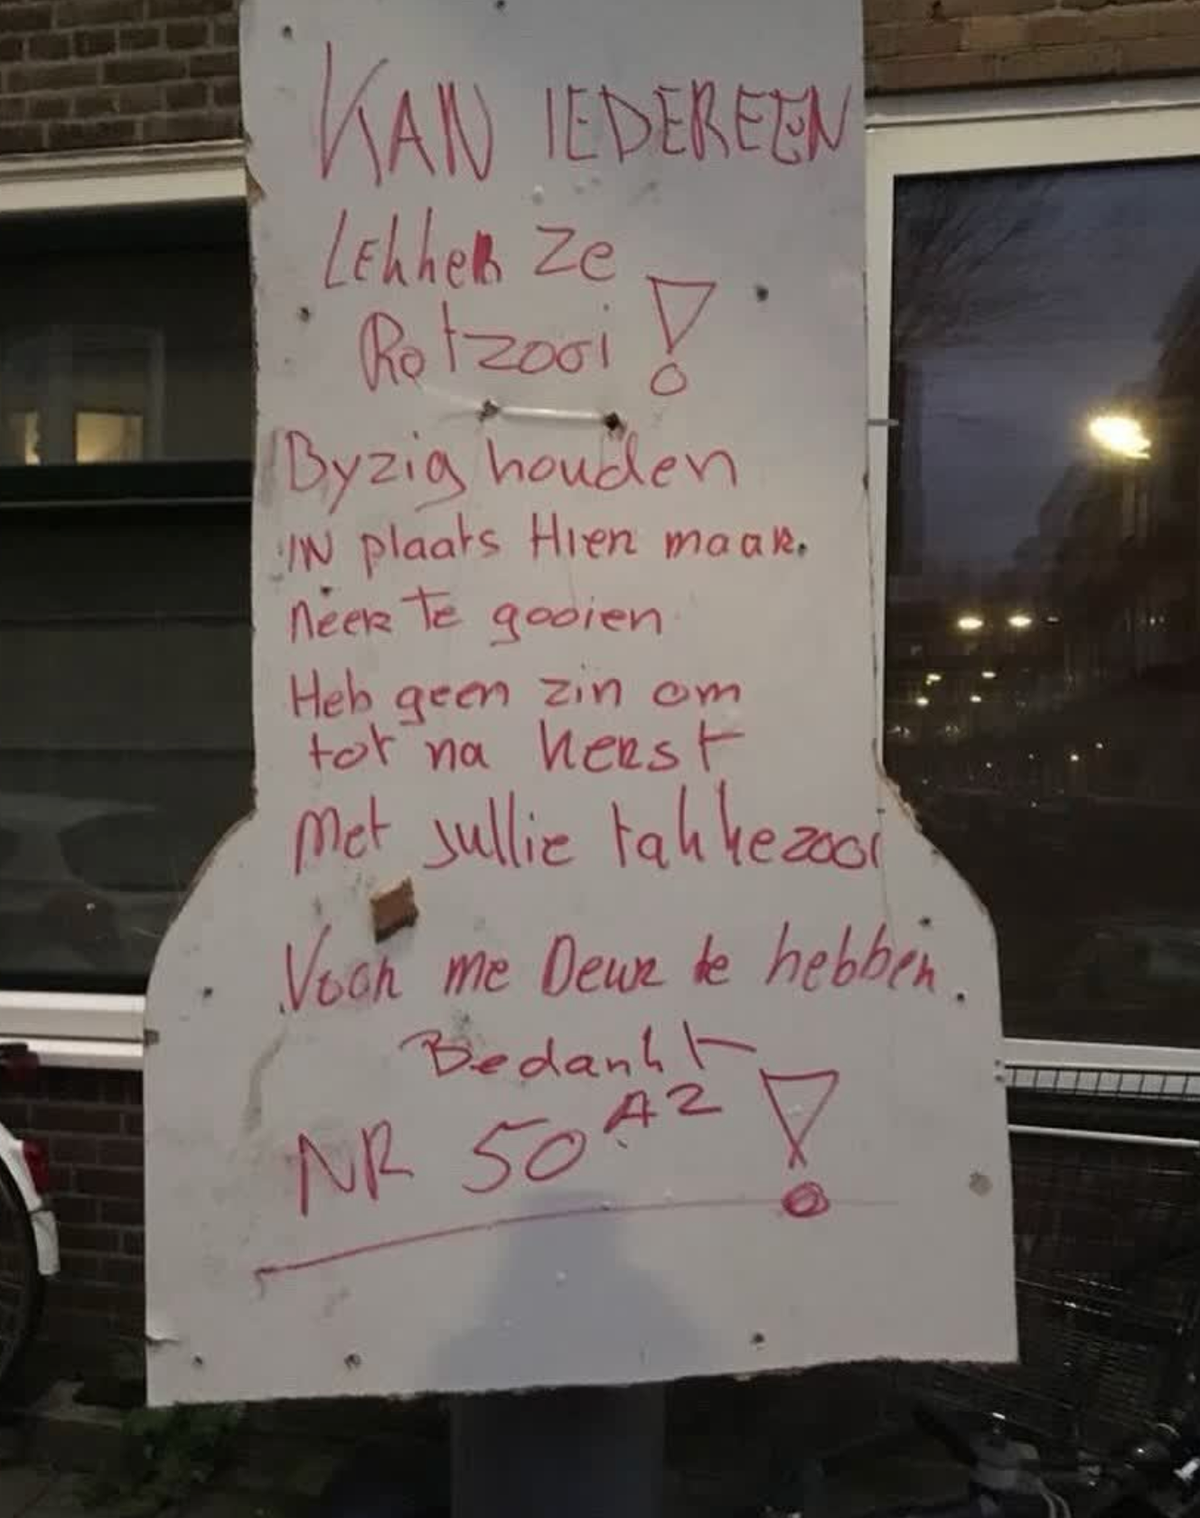 KAN IEDEREEN
Lekker ze
Rotzooi!
Byzig houden
IN plaats Hier maar.
neer te gooien
Heb geen zin om
tot na kerst
Met jullie takkezooi
Voor me Deur te hebben.
Bedankt!
NR 50 A2